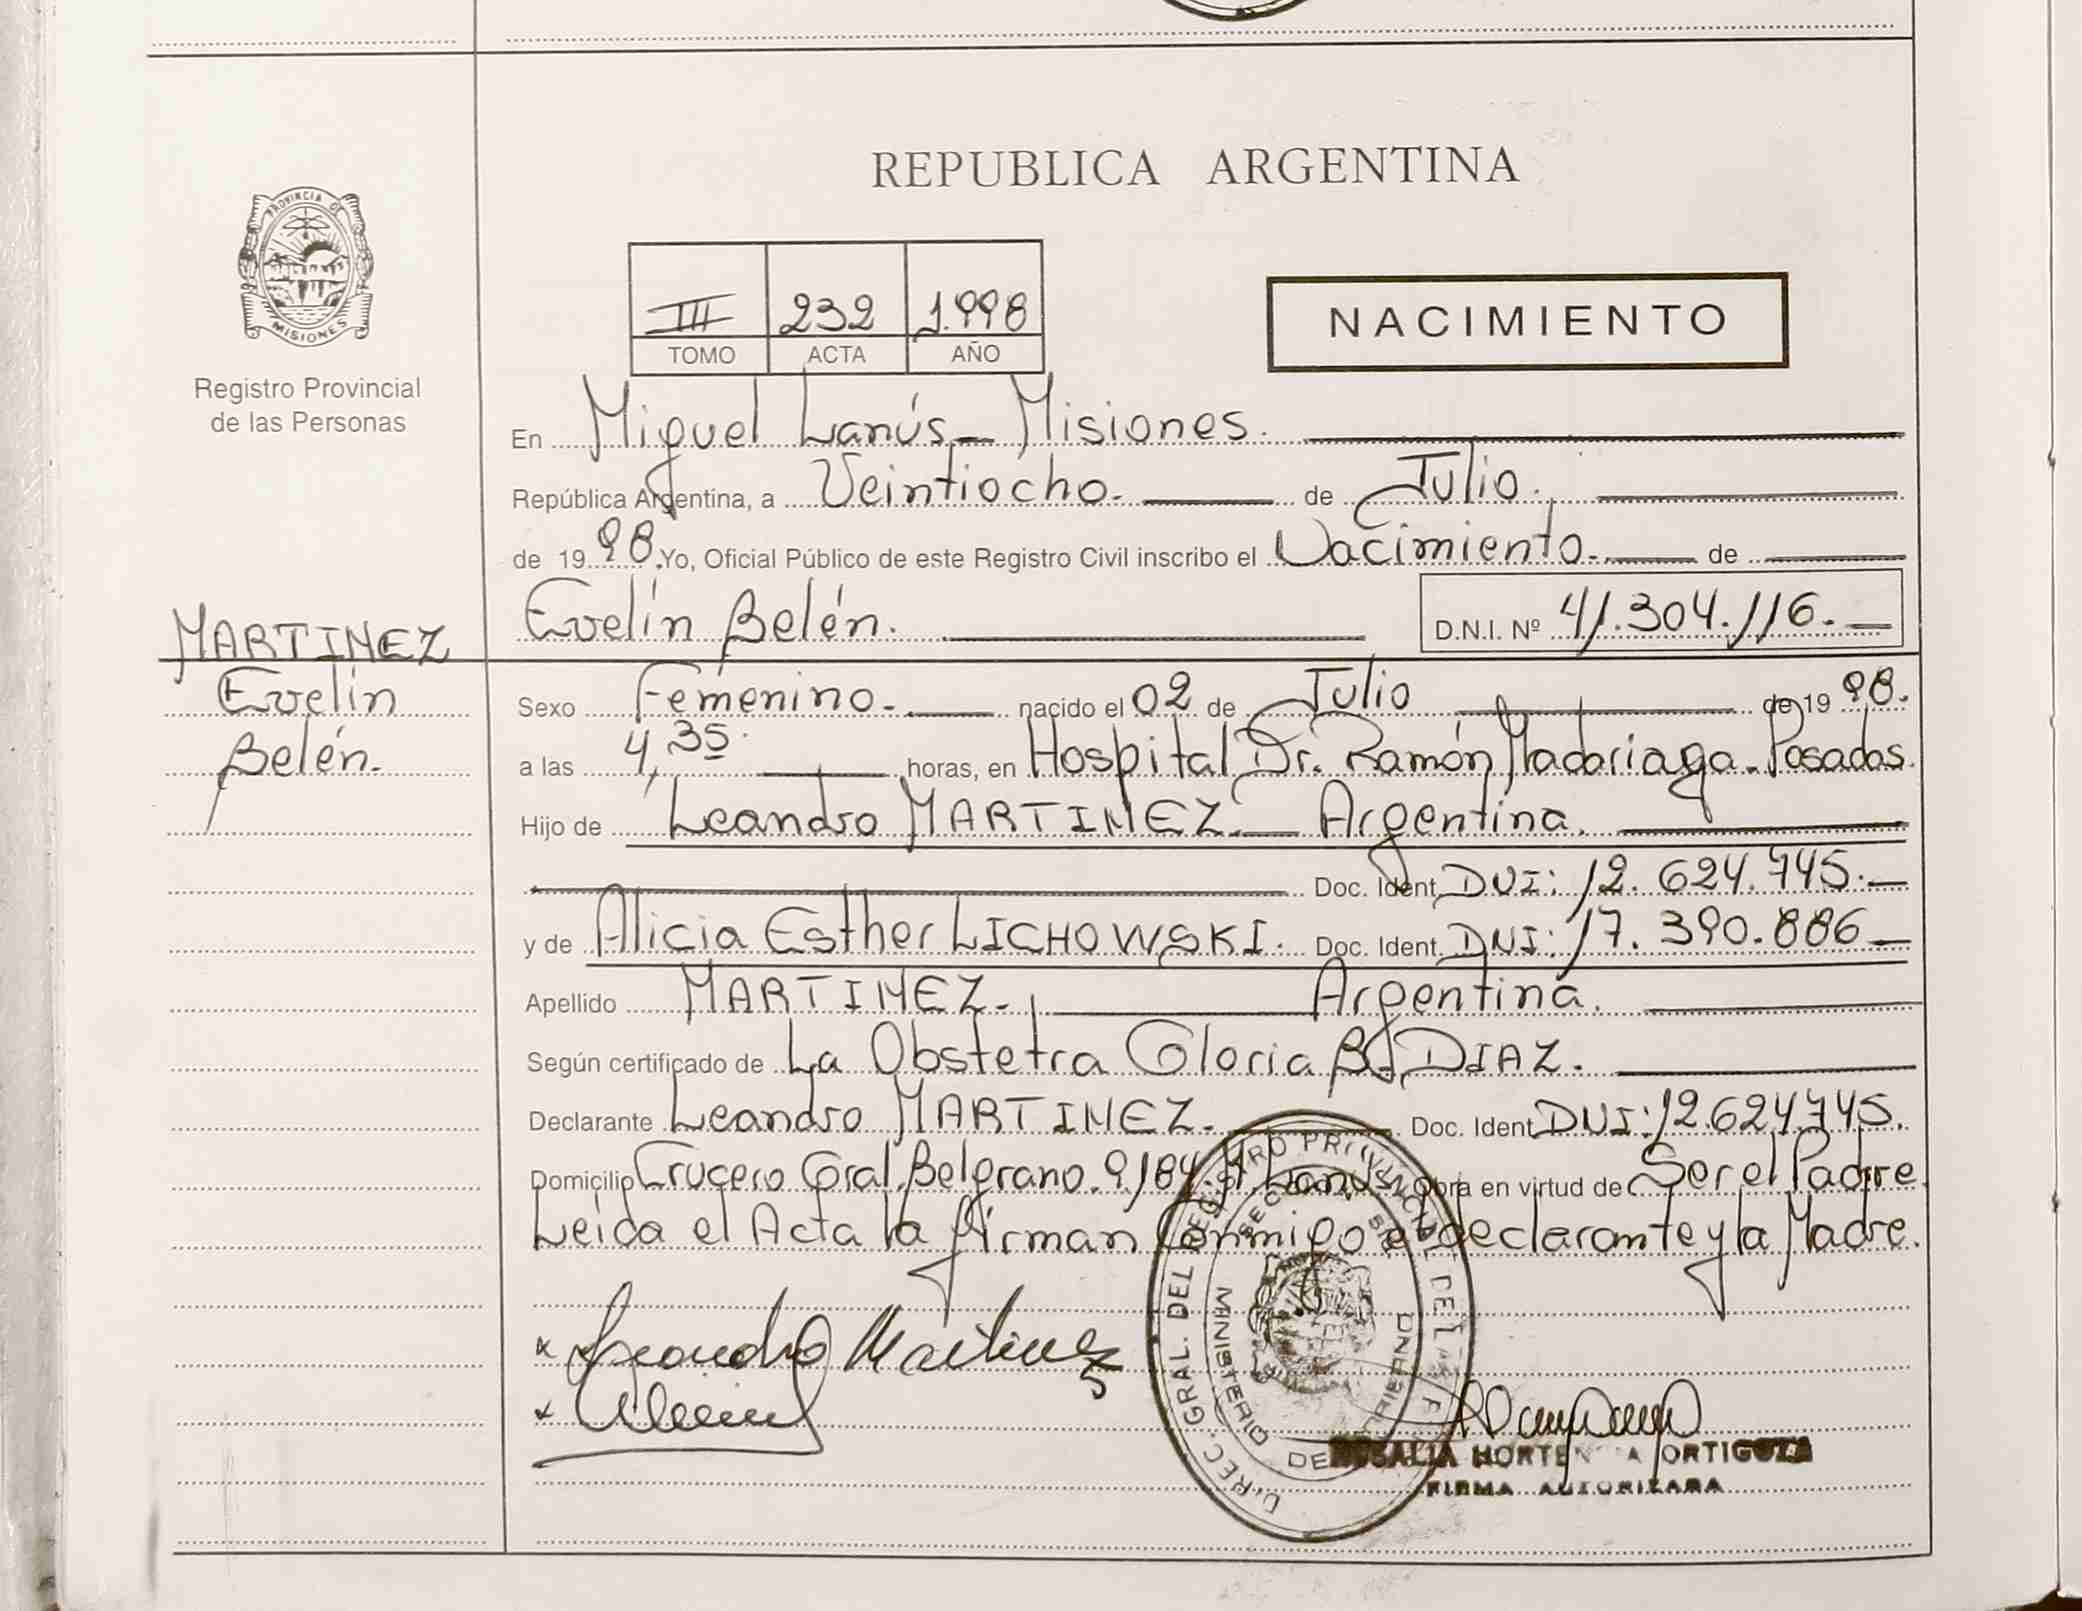 REPUBLICA ARGENTINA
PROVINCIA DE
MISIONES
Registro Provincial
de las Personas
III 232 1.998
TOMO ACTA AÑO
NACIMIENTO
En Miguel Lanús - Misiones.
República Argentina, a Veintiocho. de Julio.
de 1998. Yo, Oficial Público de este Registro Civil inscribo el Nacimiento. de
Evelín Belén. D.N.I. Nº 41.304.116.
MARTINEZ
Evelín
Belén.
Sexo Femenino. nacido el 02 de Julio de 1998.
a las 4,35. horas, en Hospital Dr. Ramón Madariaga - Posadas.
Hijo de Leandro MARTINEZ. Argentina.
Doc. Ident. DNI: 12.624.745.
y de Alicia Esther LICHOWSKI. Doc. Ident. DNI: 17.390.886
Apellido MARTINEZ. Argentina.
Según certificado de La Obstetra Gloria B. DIAZ.
Declarante Leandro MARTINEZ. Doc. Ident. DNI: 12.624.745.
Domicilio Crucero Gral. Belgrano. 9184. M. Lanús. Obra en virtud de Ser el Padre
Leida el Acta la firman conmigo el declarante y la Madre.
Leandro Martinez
DIREC. GRAL. DEL REGISTRO PROVINCIAL DE
MINISTERIO DE
HORTENCIA ORTIGOZA
FIRMA AUTORIZADA